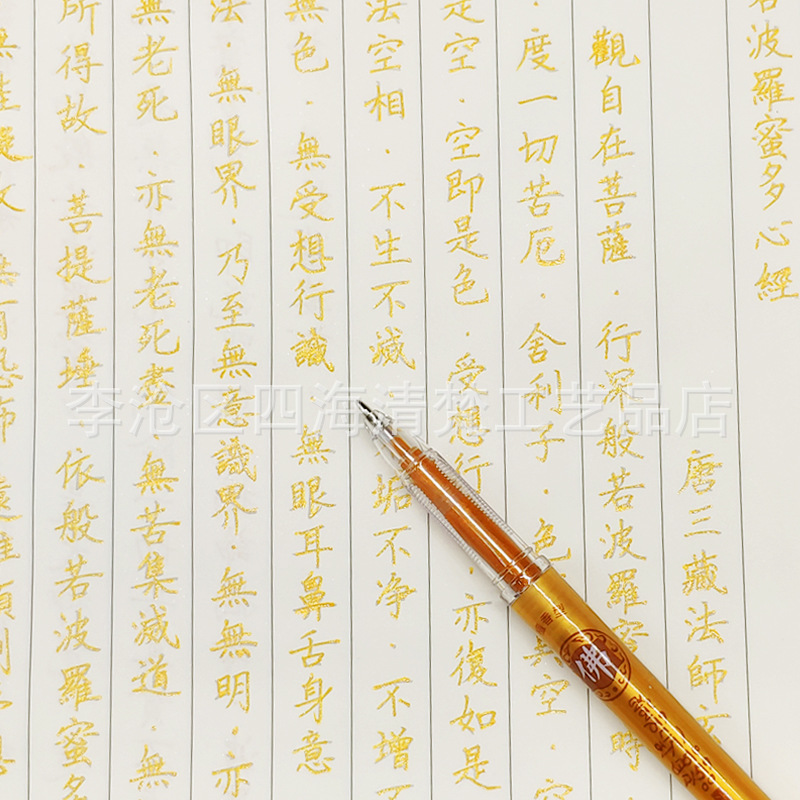 若波羅蜜多心經
唐三藏法師玄
觀自在菩薩·行深般若波羅蜜 時
·度一切苦厄·舍利子·色 空·空
是空·空即是色·受想行 ·亦復如是
法空相·不生不滅 垢不净·不增不
色·無受想行識·無眼耳鼻舌身意
法·無眼界·乃至無意識界·無無明·亦
無老死·亦無老死盡·無苦集滅道·無
所得故·菩提薩埵·依般若波羅蜜多
無罣礙故 恐怖 遠離顛倒
李沧区四海清梵工艺品店
佛